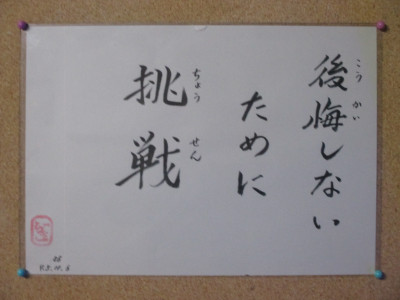 後悔しない
こうかい
ために
挑戦
ちょうせん